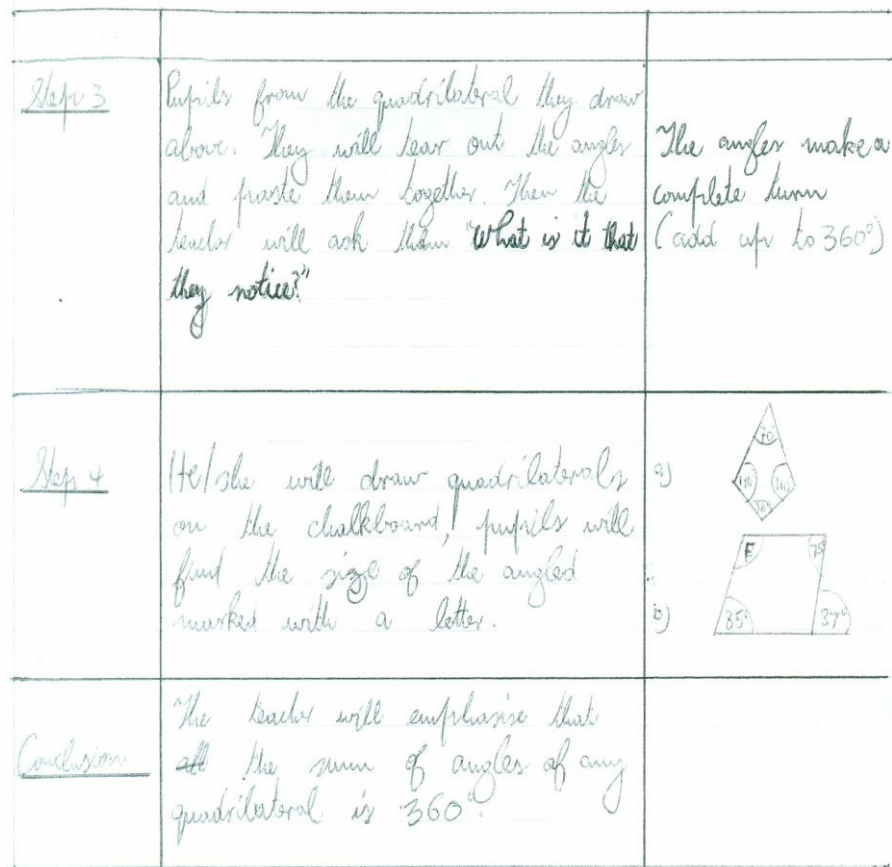 Step 3
Pupils from the quadrilateral they draw
above. They will tear out the angles
and paste them together. Then the
teacher will ask them "What is it that
they notice?"
The angles make a
complete turn
(add up to 360°)
Step 4
He/she will draw quadrilaterals
on the chalkboard, pupils will
find the size of the angled
marked with a letter.
a)
b)
E
75°
85°
37°
Conclusion
The teacher will emphasise that
the sum of angles of any
quadrilateral is 360°.